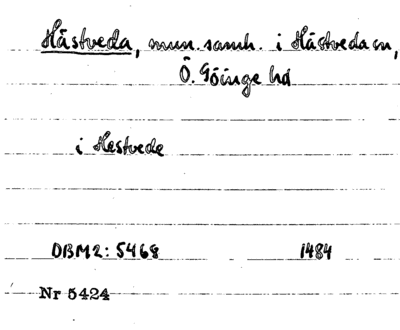 Hästveda, mun.samh. i Hästveda sn,
Ö. Göinge hd
i Hestvede
DBM2: 5468 1484
Nr 5424